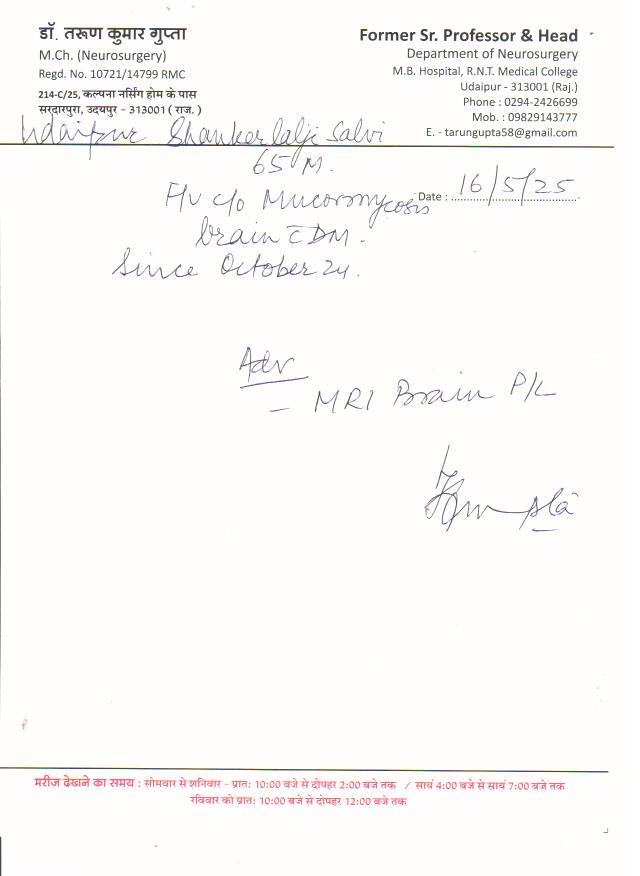 डॉ. तरूण कुमार गुप्ता
M.Ch. (Neurosurgery)
Regd. No. 10721/14799 RMC
214-C/25, कल्पना नर्सिंग होम के पास
सरदारपुरा, उदयपुर - 313001 ( राज. )
Former Sr. Professor & Head
Department of Neurosurgery
M.B. Hospital, R.N.T. Medical College
Udaipur - 313001 (Raj.)
Phone : 0294-2426699
Mob. : 09829143777
E. - tarungupta58@gmail.com
Udaipur Shankerlalji Salvi
65 M.
Date : 16/5/25
F/U c/o Mucormycosis
brain c̄ DM.
Since October 24.
Adv
- MRI Brain P/L
मरीज देखने का समय : सोमवार से शनिवार - प्रात: 10:00 बजे से दोपहर 2:00 बजे तक / सायं 4:00 बजे से सायं 7:00 बजे तक
रविवार को प्रात: 10:00 बजे से दोपहर 12:00 बजे तक